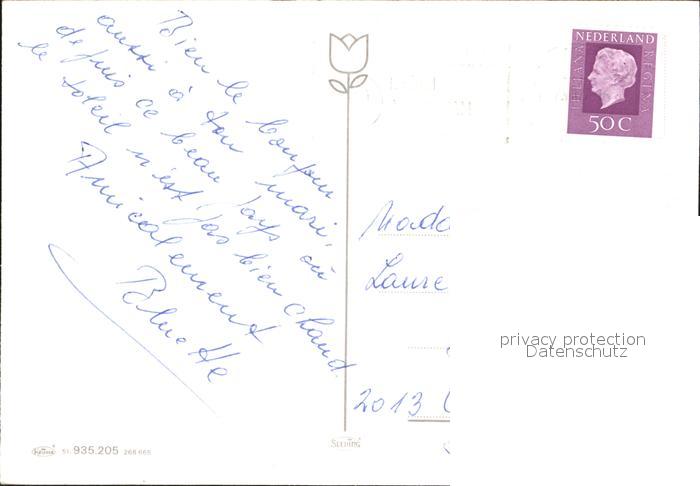 Bien le bonjour
aussi à ton mari,
depuis ce beau pays où
le soleil n'est pas bien chaud.
Amicalement
NEDERLAND
JULIANA REGINA
50 C
Mada
Laure
2013
privacy protection
Datenschutz
51. 935.205 266 665